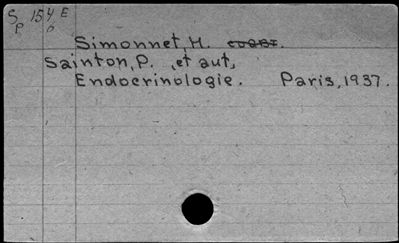 S 154 E
p b
Simonnet, H.
Sainton, P. et aut,
Endocrinologie. Paris, 1937.